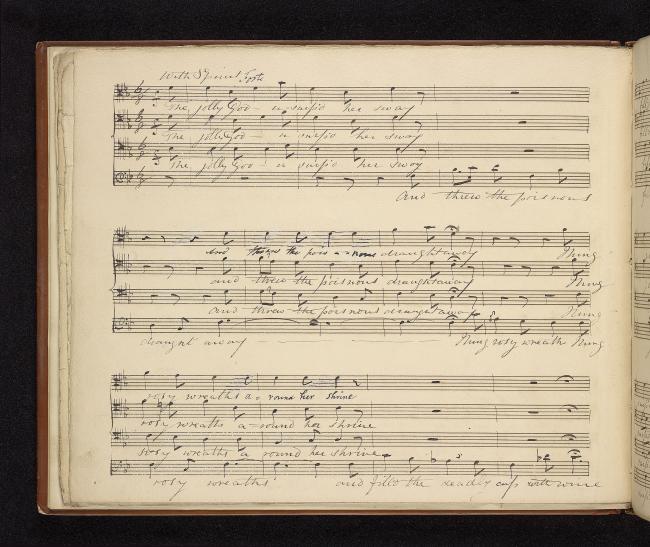 With Spirit Forte
The jolly God - u - surp'd her sway
The jolly God - u surp'd her sway
The jolly God - u surp'd her sway
And threw the poisnous
And threw the pois - nous draught away Fling
and threw the poisnous draught away Fling
and threw the poisnous draught away Fling
draught away Fling rosy wreath Fling
rosy wreaths a - round her shrine
rosy wreaths a - round her shrine
rosy wreaths a round her shrine
rosy wreaths and fill'd the deadly cup with wine